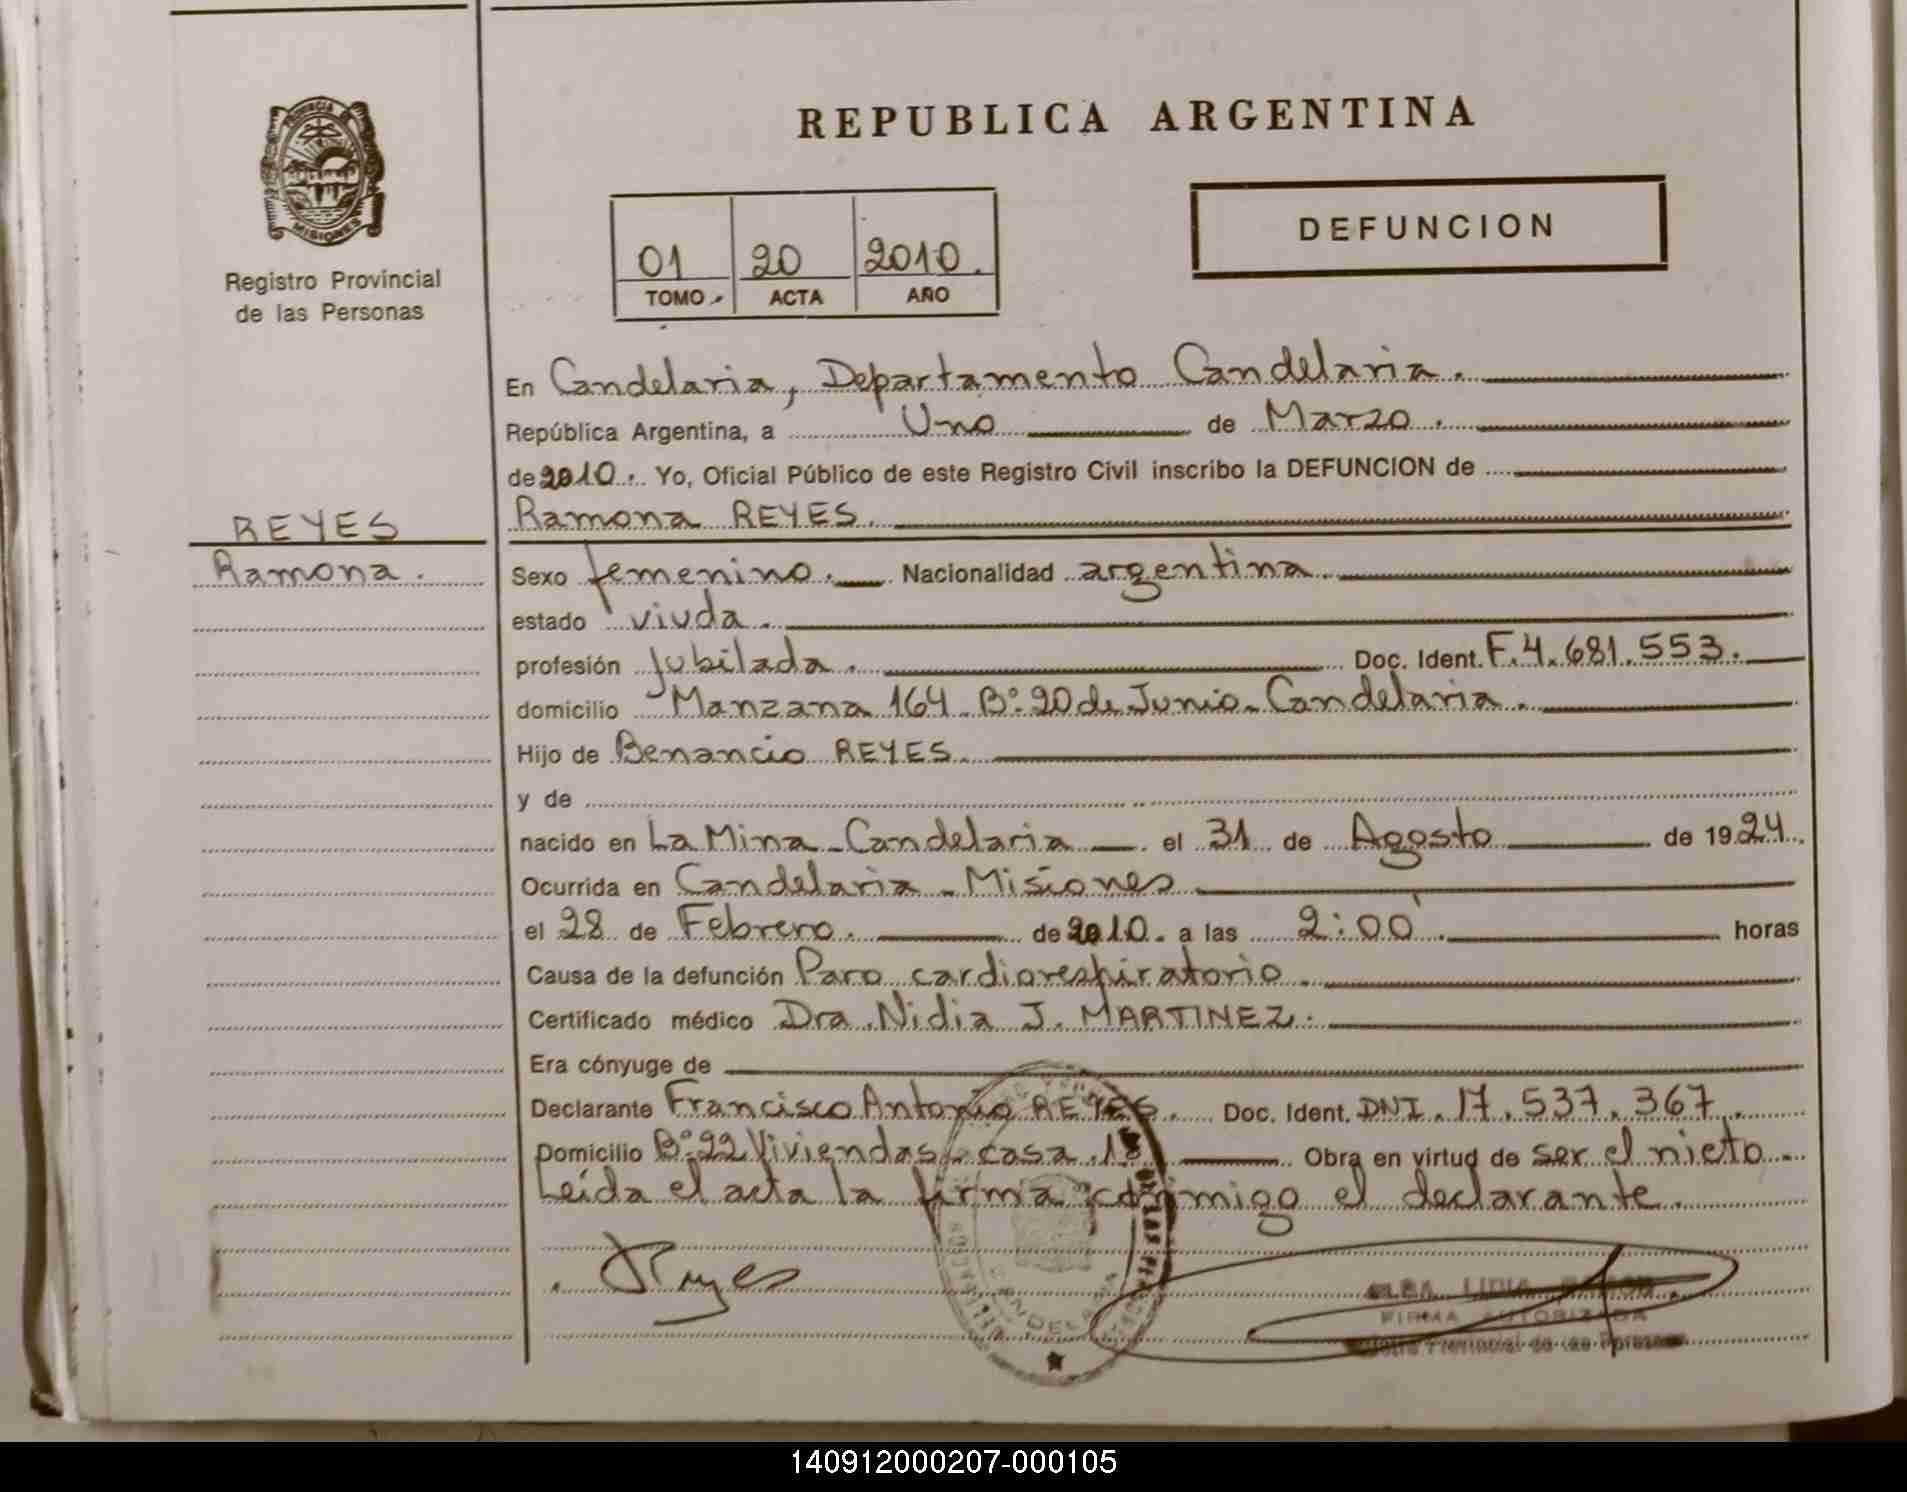 REPUBLICA ARGENTINA
PROVINCIA DE
MISIONES
Registro Provincial
de las Personas
01 20 2010.
TOMO ACTA AÑO
DEFUNCION
En Candelaria, Departamento Candelaria.
República Argentina, a Uno de Marzo.
de 2010. Yo, Oficial Público de este Registro Civil inscribo la DEFUNCION de
Ramona REYES.
REYES
Ramona.
Sexo femenino. Nacionalidad argentina.
estado viuda.
profesión Jubilada. Doc. Ident. F.4.681.553.
domicilio Manzana 164- Bº 20 de Junio- Candelaria.
Hijo de Benancio REYES.
y de
nacido en La Mina - Candelaria el 31 de Agosto de 1924.
Ocurrida en Candelaria - Misiones
el 28 de Febrero. de 2010. a las 2:00'. horas
Causa de la defunción Paro cardiorespiratorio.
Certificado médico Dra. Nidia J. MARTINEZ.
Era cónyuge de
Declarante Francisco Antonio REYES. Doc. Ident. DNI. 17.537.367.
Domicilio Bº 22 Viviendas - casa 18 Obra en virtud de ser el nieto.
Leída el acta la firma conmigo el declarante.
Reyes
LIDIA
FIRMA AUTORIZADA
CANDELARIA
140912000207-000105